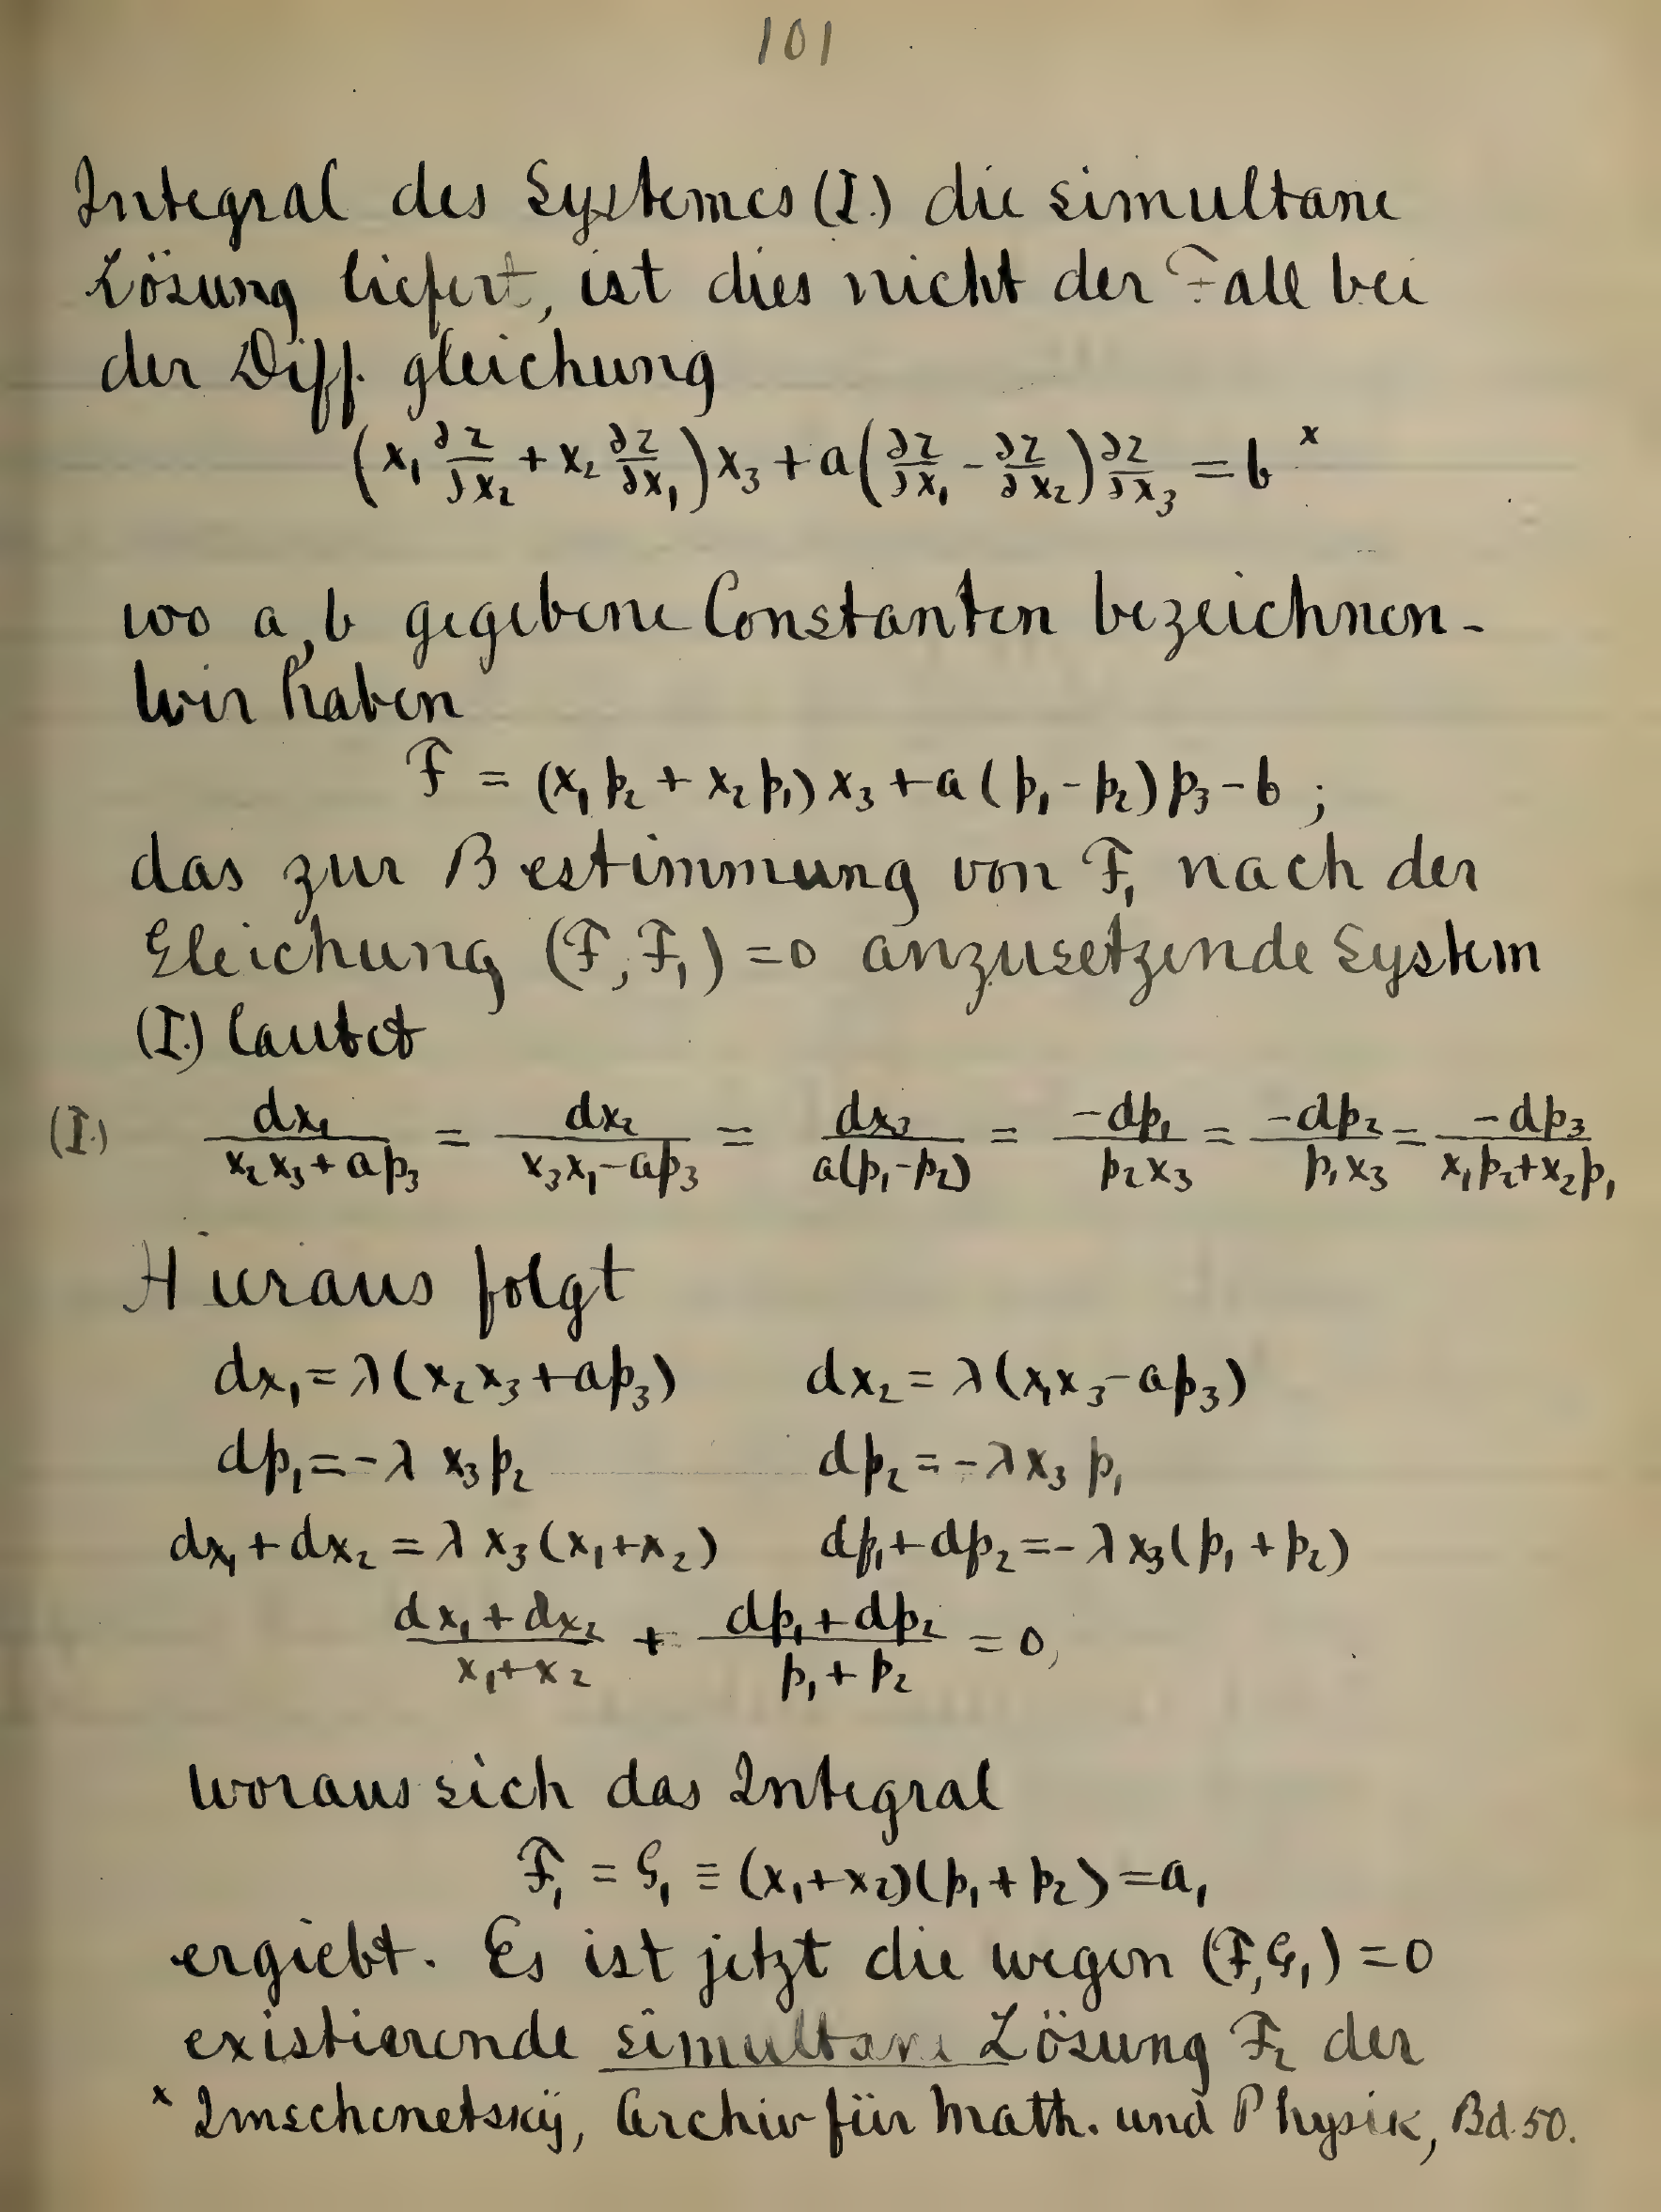 101
Integral des Systemes (I.) die simultane
Lösung liefert, ist dies nicht der Fall bei
der Diff. gleichung
(x₁ ∂z/∂x₂ + x₂ ∂z/∂x₁) x₃ + a(∂z/∂x₁ - ∂z/∂x₂) ∂z/∂x₃ = b ˣ
wo a, b gegebene Constanten bezeichnen-
Wir haben
F = (x₁p₂ + x₂p₁) x₃ + a (p₁ - p₂) p₃ - b ;
das zur Bestimmung von F₁ nach der
Gleichung (F, F₁) = 0 anzusetzende System
(I.) lautet
(I.) dx₁/(x₂x₃ + ap₃) = dx₂/(x₃x₁ - ap₃) = dx₃/(a(p₁-p₂)) = -dp₁/(p₂x₃) = -dp₂/(p₁x₃) = -dp₃/(x₁p₂+x₂p₁)
Hieraus folgt
dx₁ = λ(x₂x₃ + ap₃) dx₂ = λ(x₁x₃ - ap₃)
dp₁ = -λ x₃p₂ dp₂ = -λ x₃ p₁
dx₁ + dx₂ = λ x₃(x₁+x₂) dp₁ + dp₂ = -λ x₃(p₁ + p₂)
(dx₁ + dx₂)/(x₁ + x₂) + (dp₁ + dp₂)/(p₁ + p₂) = 0,
woraus sich das Integral
F₁ = G₁ ≡ (x₁+x₂)(p₁+p₂) = a₁
ergiebt. Es ist jetzt die wegen (F, G₁) = 0
existierende simultane Lösung F₂ der
ˣ Imschenetskÿ, Archiv für Math. und Physik, Bd. 50.